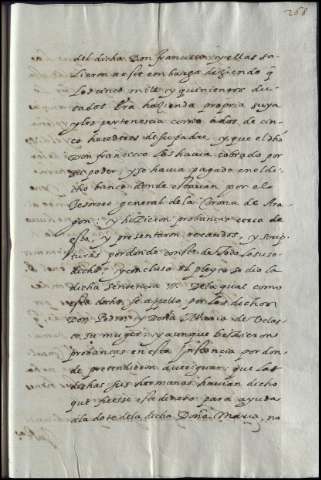 268
del dicho Don francisco, y ellas sa-
lieron a este embargo diziendo q
los cinco mil y quinientos du-
cados era hazienda propria suya
y les pertenecia como a dos de cin-
co herederos de su padre, y que el dho
Don francisco los havia cobrado por
su poder, y se havia pagado en el di-
cho banco donde estavan por el
Tesorero general de la Corona de Ara-
gon, y hizieron probança cerca de
esto, y presentaron recaudos, y scrip-
turas por donde consta de todo lo suso-
dicho, y concluso el pleyto se dio la
dicha sentencia. Dela qual como
esta dicho, se appello por los dichos
Don Pedro, y Doña Maria de Velas-
co, su muger, y aunque hizieron
probanças en esta Instancia por don-
de pretendieron averiguar, que las
dichas sus hermanas havian dicho
que este dinero para ayuda
a la dote dela dicha Doña Maria, no